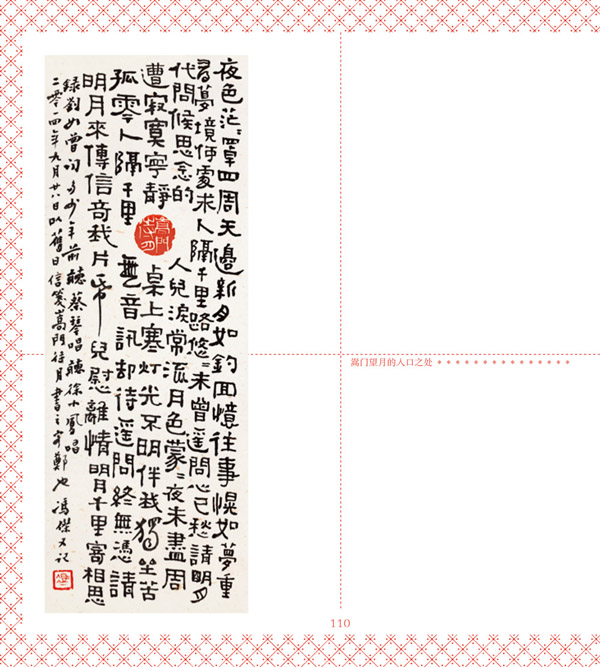 夜色茫々罩四周天邊新月如鈎回憶往事幌如夢重
尋夢境何處求人隔千里路悠々未曾遥問心已愁請明月
代問候思念的人兒淚常流月色蒙々夜未盡周
遭寂寞寧靜桌上寒灯光不明伴我獨坐苦
孤零人隔千里無音訊却待遥問終無憑請
明月來傳信寄我片帋兒慰離情明月千里寄相思
録劉如曾詞多少年前聽蔡琴唱聽徐小鳳唱
二零一四年九月廿八日以舊日信箋嵩門待月書之寄鄭也馮傑又記
嵩門待月
嵩门望月的入口之处
110